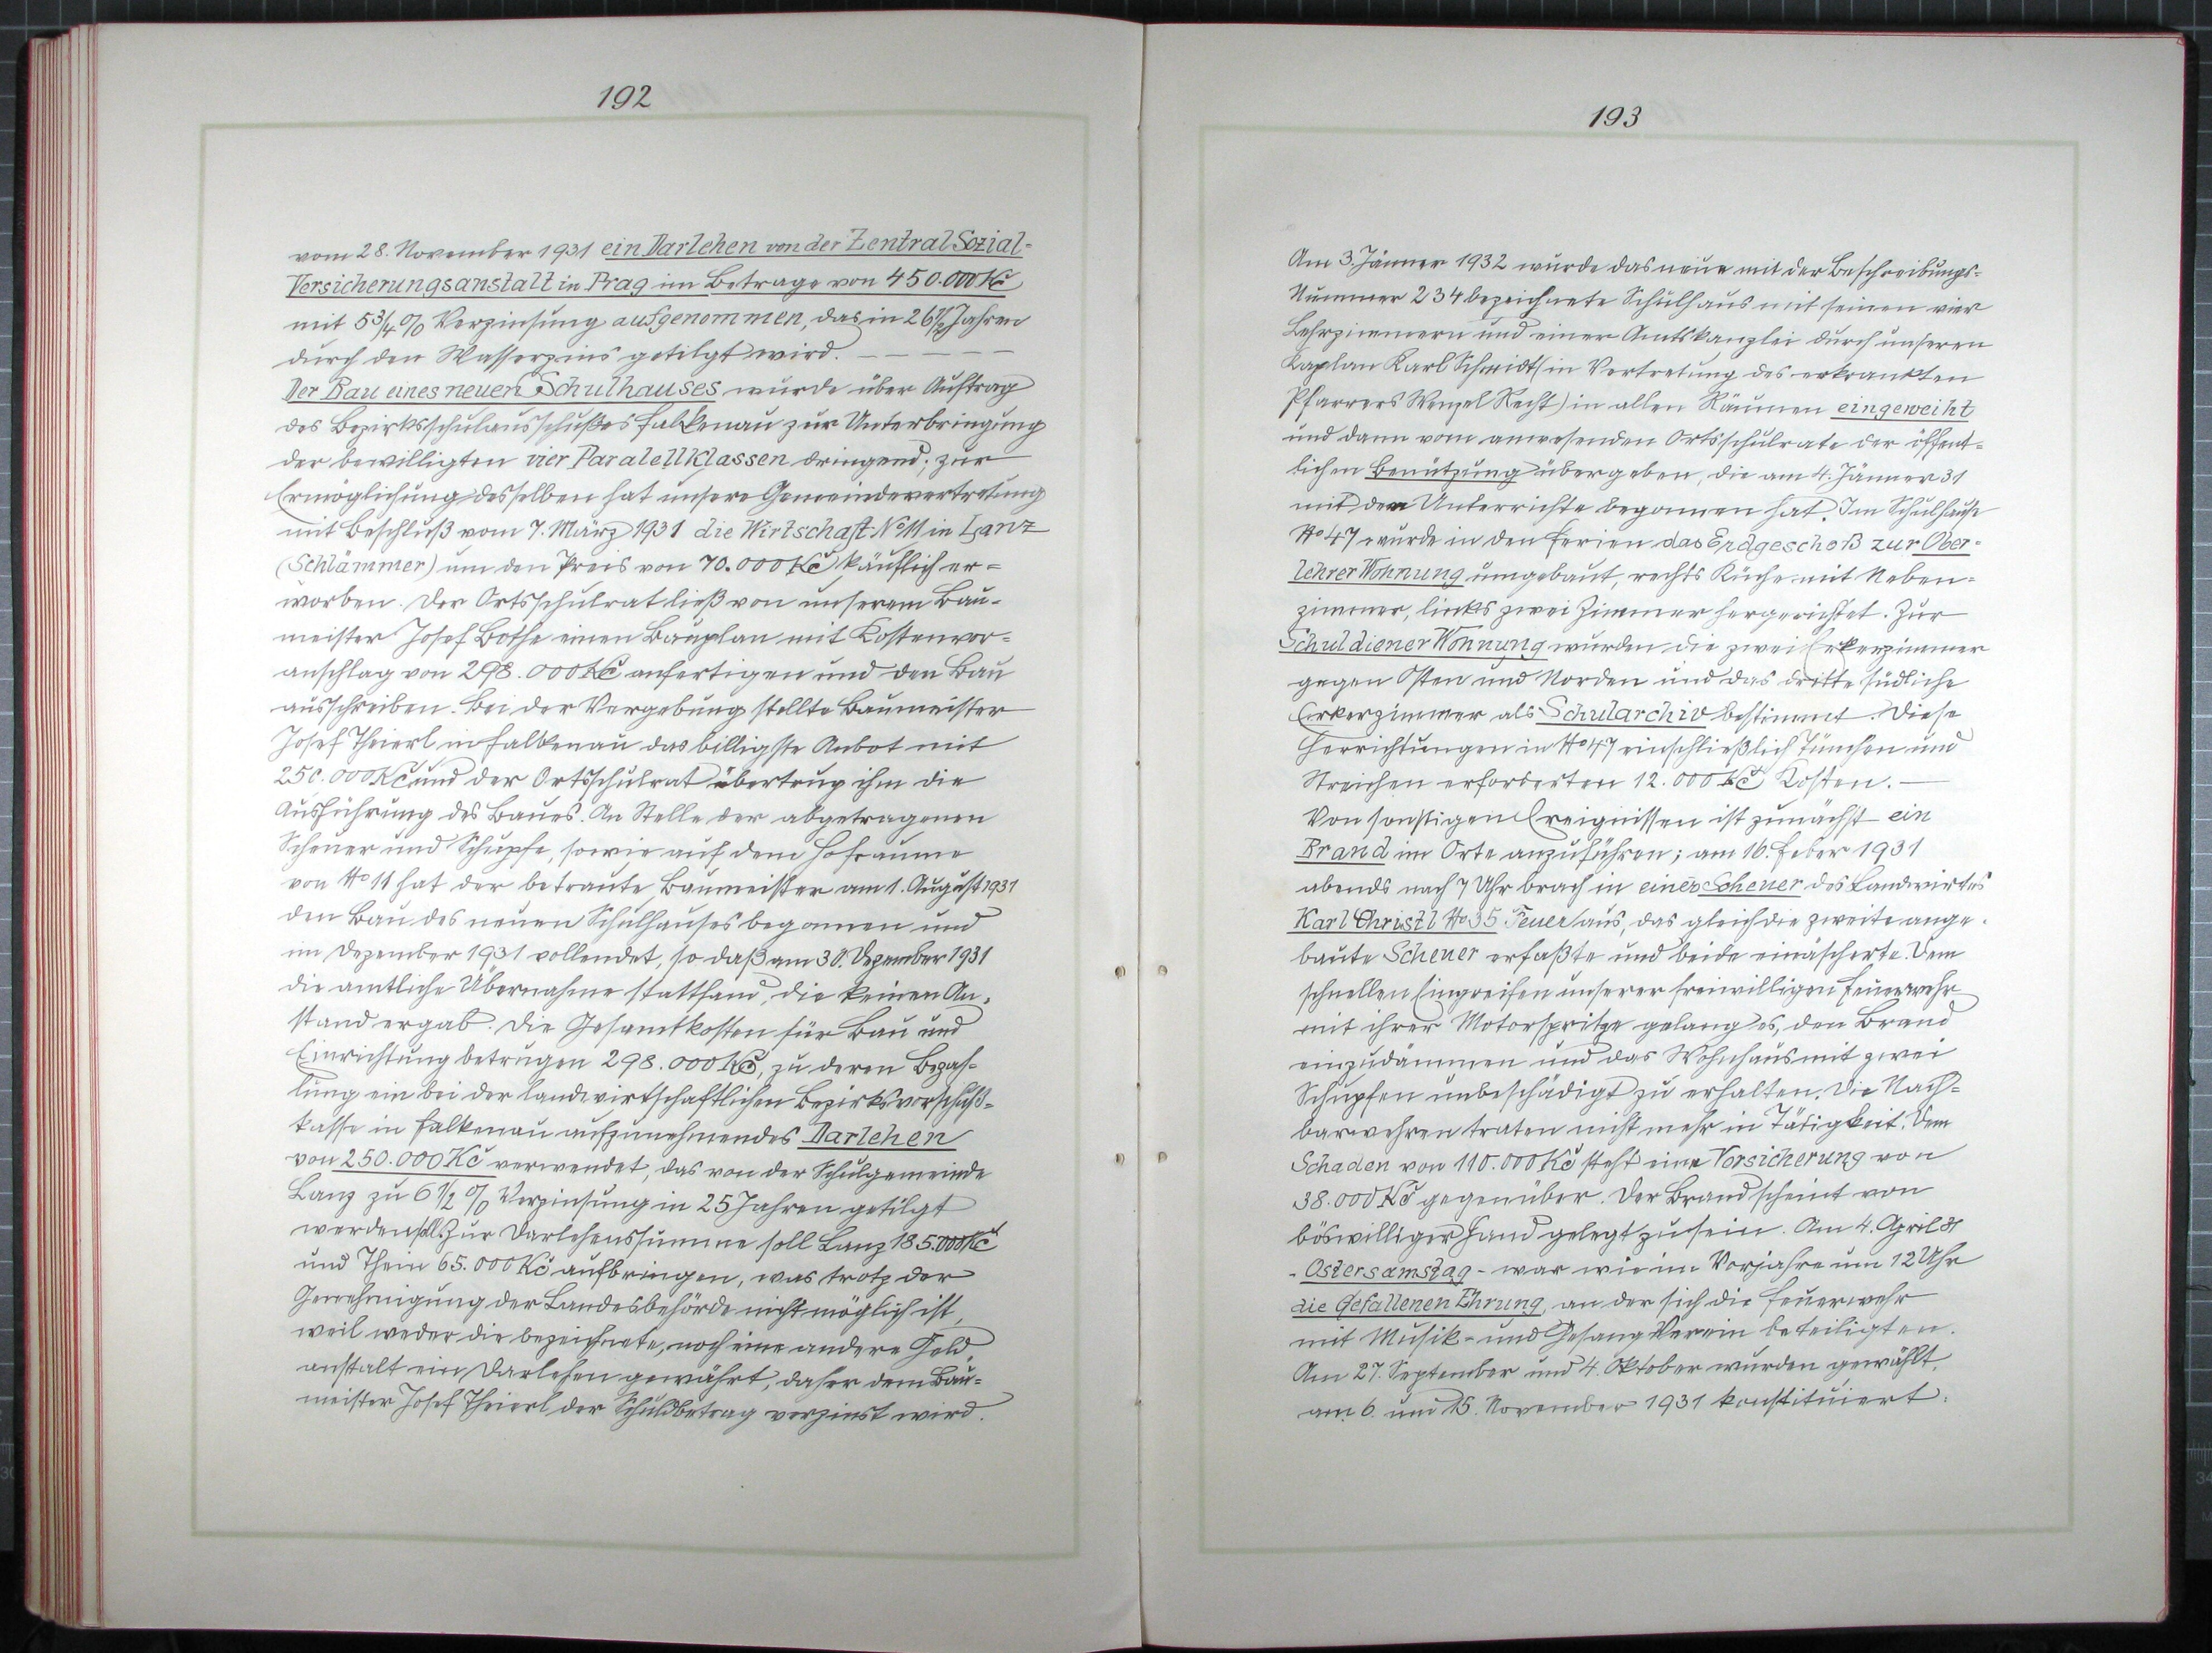 192
vom 28. November 1931 ein Darlehen von der Zentral Sozial-
Versicherungsanstalt in Prag im Betrage von 450.000 Kč
mit 5 3/4 % Verzinsung aufgenommen, das in 26 1/2 Jahren
durch den Wasserzins getilgt wird. — — — — —
Der Bau eines neuen Schulhauses wurde über Auftrag
des Bezirksschulausschußes Falkenau zur Unterbringung
der bewilligten vier Paralellklassen dringend; zur
Ermöglichung desselben hat unsere Gemeindevertretung
mit Beschluß vom 7. März 1931 die Wirtschaft No 11 in Lanz
(Schlämmer) um den Preis von 70.000 Kč käuflich er-
worben. Der Ortsschulrat ließ von unserem Bau-
meister Josef Bothe einen Bauplan mit Kostenvor-
anschlag von 298.000 Kč anfertigen und den Bau
ausschreiben. Bei der Vergebung stellte Baumeister
Josef Theierl in Falkenau das billigste Anbot mit
250.000 Kč und der Ortsschulrat übertrug ihm die
Ausführung des Baues. An Stelle der abgetragenen
Scheuer und Schupfe, sowie auf dem Hofraume
von No 11 hat der betraute Baumeister am 1. August 1931
den Bau des neuen Schulhauses begonnen und
im Dezember 1931 vollendet, so daß am 30. Dezember 1931
die amtliche Übernahme stattfand, die keinen An-
stand ergab. Die Gesamtkosten für Bau und
Einrichtung betrugen 298.000 Kč, zu deren Bezah-
lung ein bei der landwirtschaftlichen Bezirksvorschuß-
kasse in Falkenau aufzunehmendes Darlehen
von 250.000 Kč verwendet, das von der Schulgemeinde
Lanz zu 6 1/2 % Verzinsung in 25 Jahren getilgt
werden soll. Zur Darlehenssumme soll Lanz 185.000 Kč
und Thein 65.000 Kč aufbringen, was trotz der
Genehmigung der Landesbehörde nicht möglich ist,
weil weder die bezeichnete, noch eine andere Geld
anstalt ein Darlehen gewährt, daher dem Bau-
meister Josef Theierl der Schuldbetrag verzinst wird.
193
Am 3. Jänner 1932 wurde das neue mit der Beschreibungs-
Nummer 234 bezeichnete Schulhaus mit seinen vier
Lehrzimmern und einer Amtskanzlei durch unseren
Kaplan Karl Schmidt (in Vertretung des erkrankten
Pfarrers Wenzel Recht) in allen Räumen eingeweiht
und dann vom anwesenden Ortsschulrate der öffent-
lichen Benützung übergeben, die am 4. Jänner 31
mit dem Unterrichte begonnen hat. Im Schulhause
No 47 wurde in den Ferien das Erdgeschoß zur Ober-
lehrer Wohnung umgebaut, rechts Küche mit Neben-
zimmer, links zwei Zimmer hergerichtet. Zur
Schuldiener Wohnung wurden die zwei Erkerzimmer
gegen Osten und Norden und das dritte südliche
Erkerzimmer als Schularchiv bestimmt. Diese
Herrichtungen in No 47 einschließlich Tünchen und
Streichen erforderten 12.000 Kč Kosten. —
Von sonstigen Ereignissen ist zunächst ein
Brand im Orte anzuführen; am 16. Feber 1931
abends nach 7 Uhr brach in einer Scheuer des Landwirtes
Karl Christl No 35 Feuer aus, das gleich die zweite ange-
baute Scheuer erfaßte und beide einäscherte. Dem
schnellen Eingreifen unserer freiwilligen Feuerwehr
mit ihrer Motorspritze gelang es, den Brand
einzudämmen und das Wohnhaus mit zwei
Schupfen unbeschädigt zu erhalten. Die Nach-
barwehren traten nicht mehr in Tätigkeit. Dem
Schaden von 110.000 Kč steht eine Versicherung von
38.000 Kč gegenüber. Der Brand scheint von
böswilliger Hand gelegt zu sein. Am 4. April 31
- Ostersamstag - war wie im Vorjahre um 12 Uhr
die Gefallenen Ehrung, an der sich die Feuerwehr
mit Musik- und Gesang Verein beteiligten.
Am 27. September und 4. Oktober wurden gewählt,
am 6. und 15. November 1931 konstituiert: